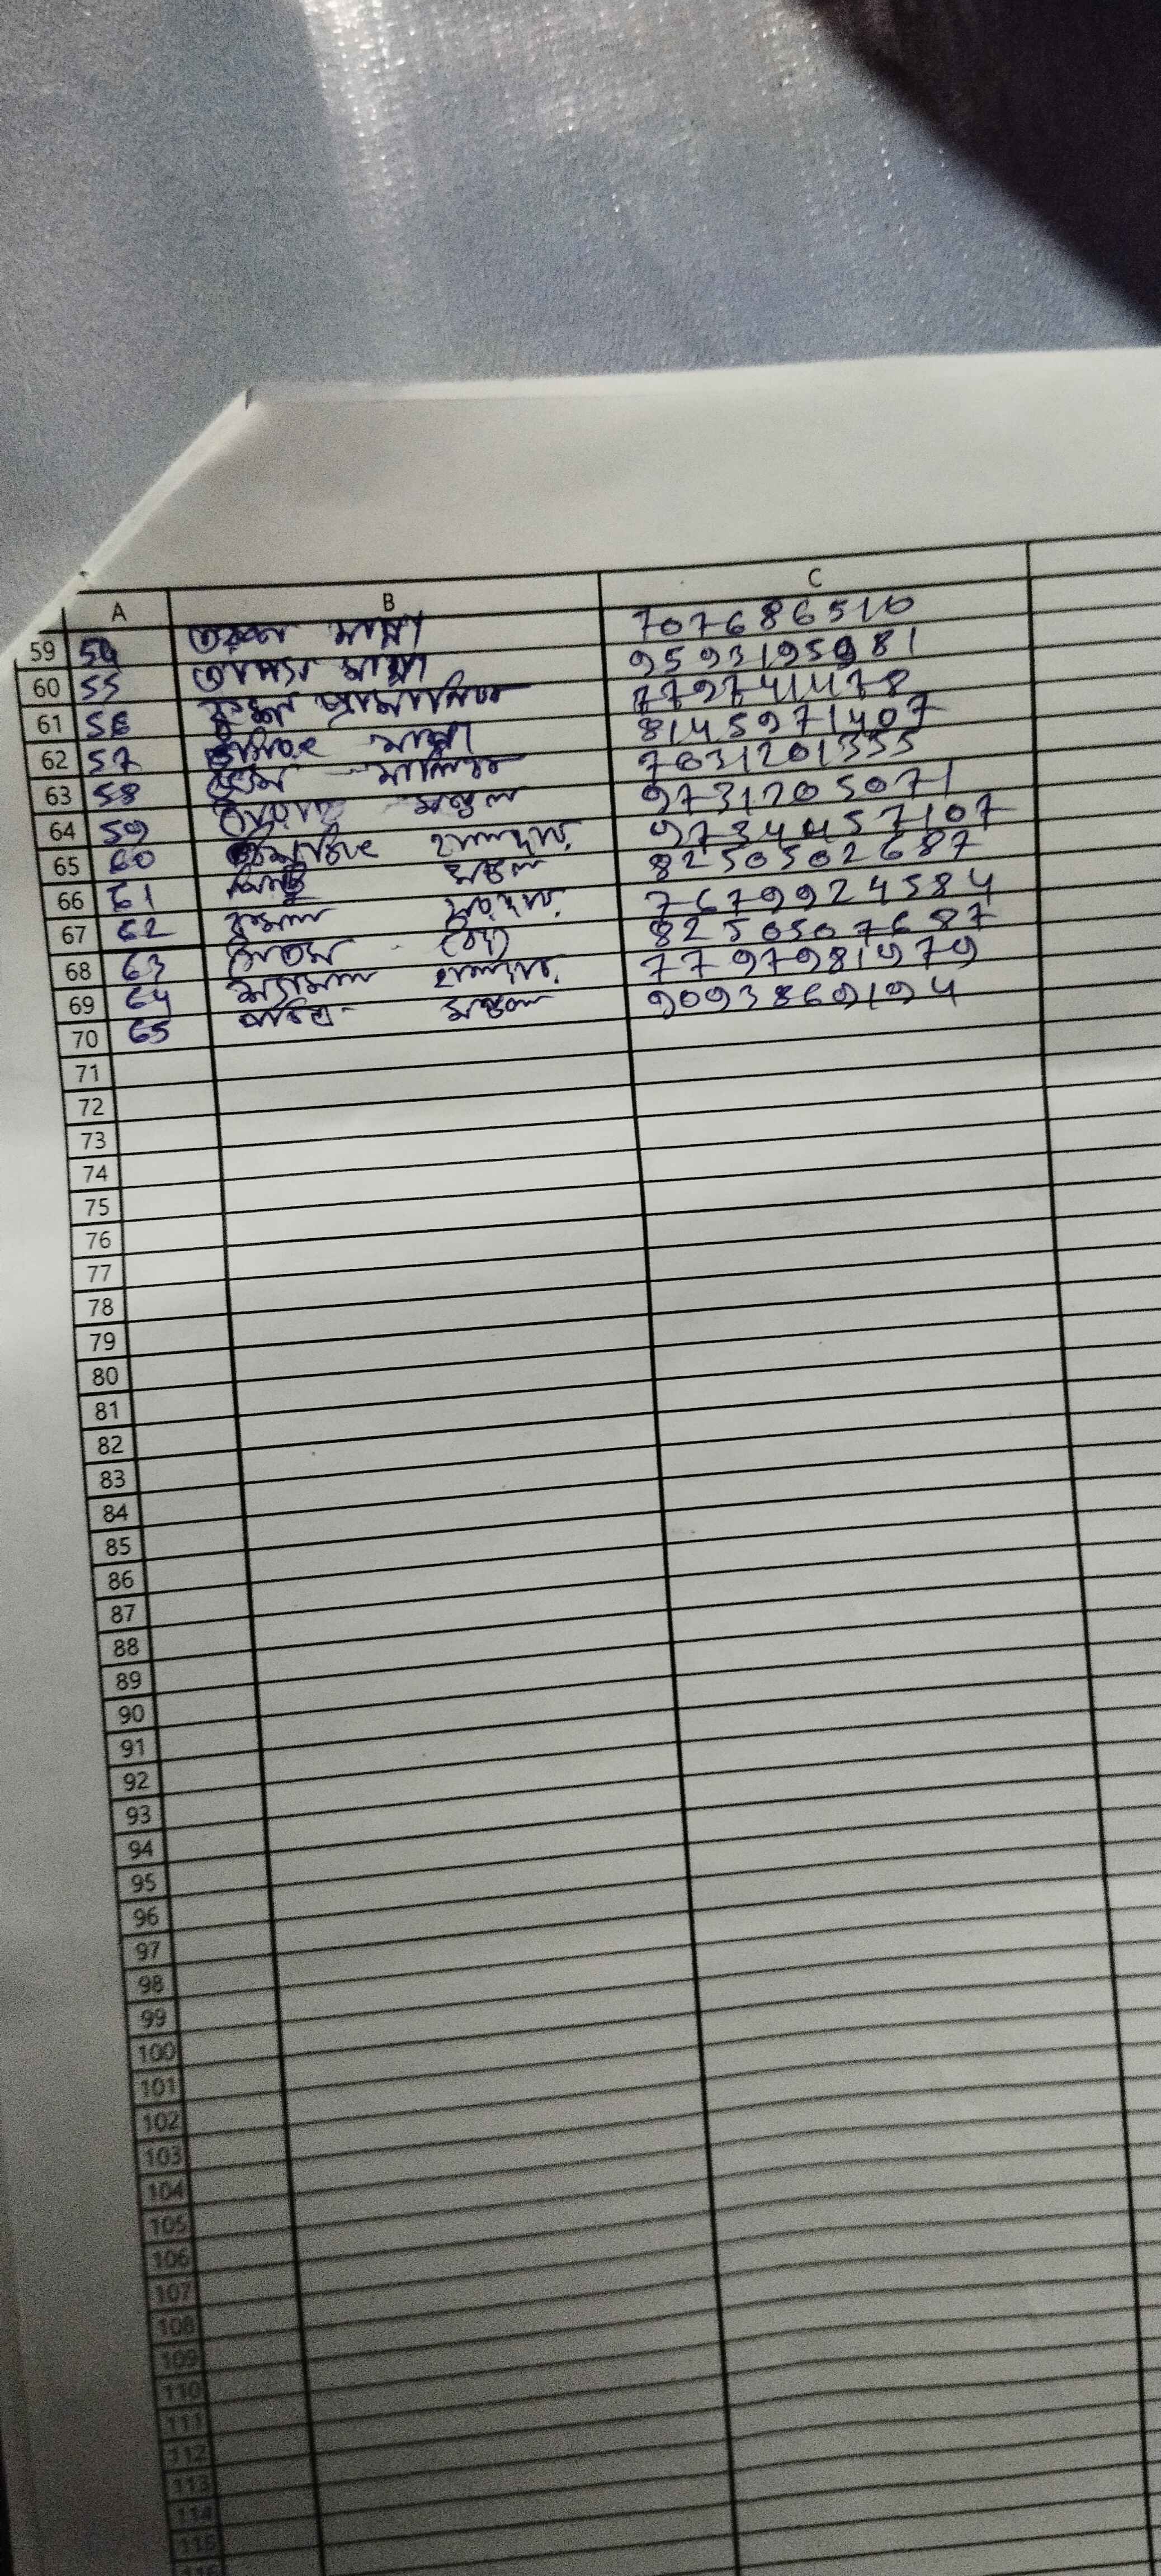 A B C
59 54 তরুণ মান্না 707686510
60 55 তাপস মান্না 9593195981
61 56 প্রামানিক 779741478
62 57 মান্না 8145971407
63 58 মালিক 7031201355
64 59 মন্ডল 9731205071
65 60 হালদার 97344457107
66 61 মন্ডল 8250502687
67 62 কমল সরদার 7679924584
68 63 8250507687
69 64 শ্যামল হালদার 7797981979
70 65 মন্ডল 9093869194
71
72
73
74
75
76
77
78
79
80
81
82
83
84
85
86
87
88
89
90
91
92
93
94
95
96
97
98
99
100
101
102
103
104
105
106
107
108
109
110
111
112
113
114
115